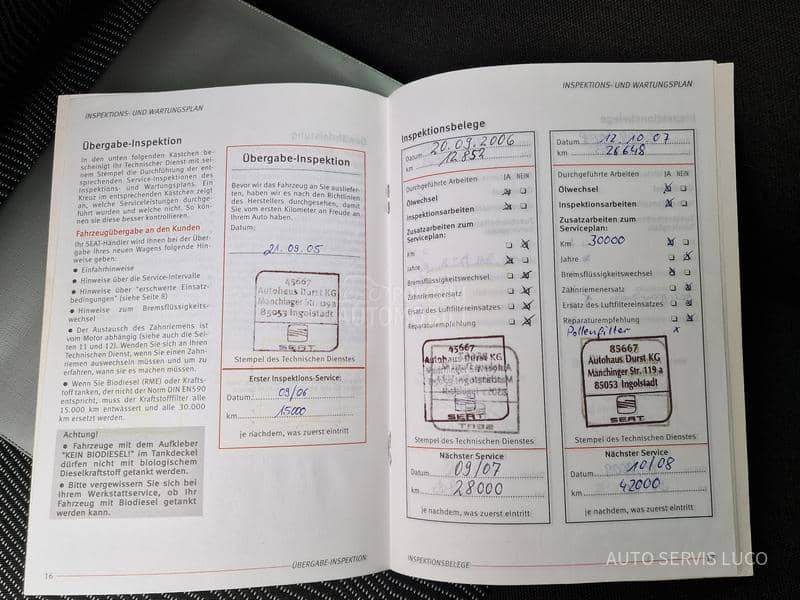 INSPEKTIONS- UND WARTUNGSPLAN
Übergabe-Inspektion
In den unten folgenden Kästchen be-
scheinigt Ihr Technischer Dienst mit sei-
nem Stempel die Durchführung der ent-
sprechenden Service-Inspektionen des
Inspektions- und Wartungsplans. Ein
Kreuz im entsprechenden Kästchen zeigt
an, welche Serviceleistungen durchge-
führt wurden und welche nicht. So kön-
nen sie diese besser kontrollieren.
Fahrzeugübergabe an den Kunden
Ihr SEAT-Händler wird Ihnen bei der Über-
gabe ihres neuen Wagens folgende Hin-
weise geben:
● Einfahrhinweise
● Hinweise über die Service-Intervalle
● Hinweise über "erschwerte Einsatz-
bedingungen" (siehe Seite 8)
● Hinweise zum Bremsflüssigkeits-
wechsel
● Der Austausch des Zahnriemens ist
vom Motor abhängig (siehe auch die Sei-
ten 11 und 12). Wenden Sie sich an Ihren
Technischen Dienst, wenn Sie einen Zahn-
riemen auswechseln müssen und um zu
erfahren, wann sie es machen müssen.
● Wenn Sie Biodiesel (RME) oder Krafts-
toff tanken, der nicht der Norm DIN EN590
entspricht, muss der Kraftstofffilter alle
15.000 km entwässert und alle 30.000
km ersetzt werden.
Achtung!
● Fahrzeuge mit dem Aufkleber
"KEIN BIODIESEL!" im Tankdeckel
dürfen nicht mit biologischem
Dieselkraftstoff getankt werden.
● Bitte vergewissern Sie sich bei
Ihrem Werkstattservice, ob Ihr
Fahrzeug mit Biodiesel getankt
werden kann.
16
Übergabe-Inspektion
Bevor wir das Fahrzeug an Sie ausliefer-
ten, haben wir es nach den Richtlinien
des Herstellers durchgesehen, damit
Sie vom ersten Kilometer an Freude an
Ihrem Auto haben.
Datum:
21.09.05
45667
Autohaus Durst KG
Manchinger Str. 119a
85053 Ingolstadt
SEAT
Stempel des Technischen Dienstes
Erster Inspektions-Service:
Datum 09/06
km 15000
je nachdem, was zuerst eintritt
ÜBERGABE-INSPEKTION
INSPEKTIONS- UND WARTUNGSPLAN
Inspektionsbelege
Datum 20.09.2006
km 12853
Durchgeführte Arbeiten JA NEIN
Ölwechsel
Inspektionsarbeiten
Zusatzarbeiten zum
Serviceplan:
Km
Jahre
Bremsflüssigkeitswechsel
Zahnriemenersatz
Ersatz des Luftfiltereinsatzes
Reparaturempfehlung
45667
Autohaus Durst KG
SEAT
Stempel des Technischen Dienstes
Nächster Service
Datum 09/07
km 28000
je nachdem, was zuerst eintritt
INSPEKTIONSBELEGE
Datum 12.10.07
km 26648
Durchgeführte Arbeiten JA NEIN
Ölwechsel
Inspektionsarbeiten
Zusatzarbeiten zum
Serviceplan:
Km 30000
Jahre
Bremsflüssigkeitswechsel
Zahnriemenersatz
Ersatz des Luftfiltereinsatzes
Reparaturempfehlung
Pollenfilter x
85667
Autohaus Durst KG
Manchinger Str. 119 a
85053 Ingolstadt
SEAT
Stempel des Technischen Dienstes
Nächster Service
Datum 10/08
km 42000
je nachdem, was zuerst eintritt
AUTO SERVIS LUCO